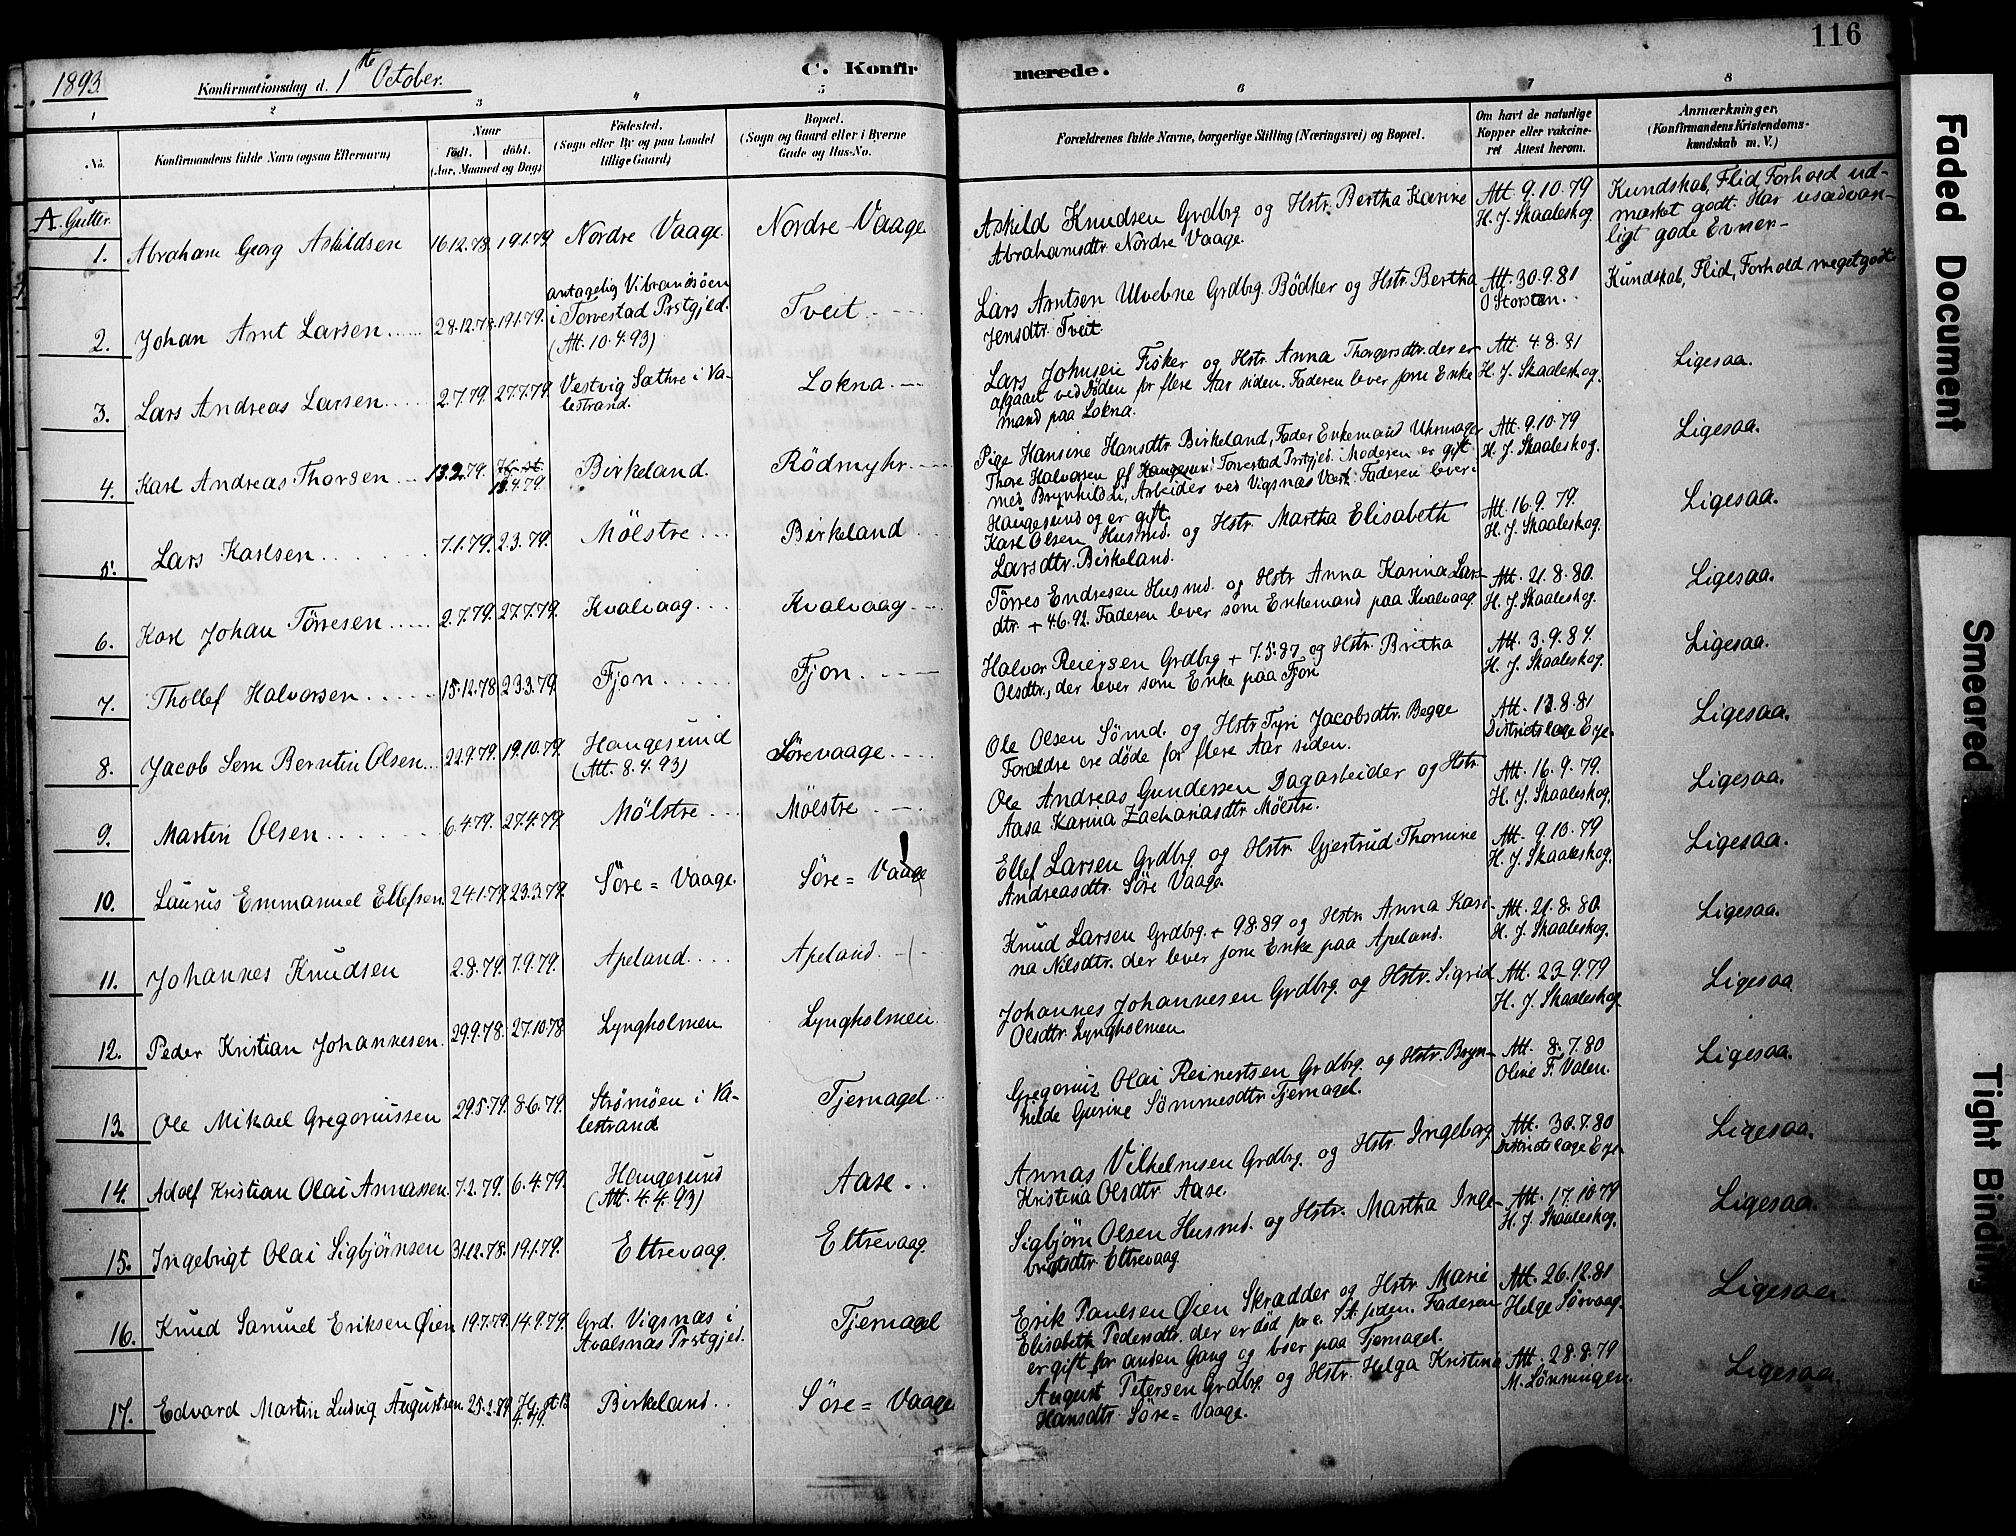 116
1893
Konfirmationsdag d. 1ste October.
C. Konfirmerede.
1 2 3 4 5 6 7 8
No.
Konfirmandens fulde Navn (ogsaa Efternavn)
Naar født. døbt. (Aar, Maaned og Dag)
Fødested. (Sogn eller By og paa Landet tillige Gaard)
Bopæl. (Sogn og Gaard eller i Byerne Gade og Hus-No.
Forældrenes fulde Navne, borgerlige Stilling (Næringsvei) og Bopæl.
Om havt de naturlige Kopper eller vaccineret Attest herom.
Anmærkninger. (Konfirmandens Kristendomskundskab m. V.)
A. Gutter.
1. Abraham Georg Askildsen 16.12.78 19.1.79 Nordre Vaage Nordre Vaage
Askild Knudsen Grdbrg og Hstr. Bertha Karine
Abrahamsdtr Nordre Vaage.
Att. 9.10.79
H. J. Skaaleskog
Kundskab, Flid, Forhold ud-
mærket godt. Har usædvan-
ligt gode Evner
2. Johan Arnt Larsen 28.12.78 19.1.79.
antagelig Vibrandsøen
i Torvestad Prstgjeld.
(Att. 10.4.93)
Tveit
Lars Arntsen Ulvebne Grdbrg. Bödker og Hstr. Bertha
Jensdtr Tveit
Att. 30.9.81
O Storsten.
Kundskab, Flid, Forhold meget godt
3. Lars Andreas Larsen 2.7.79. 27.7.79.
Vestvig Sæthre i Va-
lestrand.
Lokna.
Lars Johnsen Fisker og Hstr. Anna Thorgersdtr. der er
afgaaet ved Döden for flere Aar siden. Faderen lever som Enke
mand paa Lokna.
Att. 4.8.81
H. J. Skaaleskog.
Ligesaa.
4. Karl Andreas Thorsen 13.2.79. 13.4.79. Birkeland. Rödmyhr.
Pige Hansine Hansdtr Birkeland, Fader Enkemand Uhrmager
Thore Halvorsen af Haugesund Torvestad Prstgjed. Moderen er gift
med Brynhild Arbeider ved Vigsnæs Værk. Faderen lever i
Haugesund og er gift.
Att. 9.10.79
H. J. Skaaleskog.
Ligesaa.
5. Lars Karlsen 7.1.79. 2.3.79. Mölstre Birkeland
Karl Olsen Husmd. og Hstr. Martha Elisabeth
Larsdtr. Birkeland.
Att. 16.9.79.
H. J. Skaaleskog.
Ligesaa.
6. Karl Johan Törresen 2.7.79. 27.7.79. Kvalvaag Kvalvaag
Törres Endresen Husmd. og Hstr Anna Karina Lars
dtr. + 4.6.92. Faderen lever som Enkemand paa Kvalvaag
Att. 21.8.80.
H. J. Skaaleskog.
Ligesaa.
7. Thollef Halvorsen 15.12.78 23.3.79. Fjon Fjon
Halvor Reiersen Grdbrg + 7.5.87 og Hstr. Britha
Olsdtr., der lever som Enke paa Fjon
Att. 3.9.84.
H. J. Skaaleskog.
Ligesaa.
8. Jacob Sem Berntin Olsen 22.9.79. 19.10.79.
Haugesund
(Att. 8.4.93)
Sörevaage
Ole Olsen Sömd. og Hstr Tyri Jacobsdtr. Begge
Forældre ere döde for flere Aar siden.
Att. 12.8.81
Districtslæge Eye-
Ligesaa.
9. Martin Olsen 6.4.79. 27.4.79 Mölstre Mölstre
Ole Andreas Gundersen Dagarbeider og Hstr
Aasa Karina Zachariasdtr Mölstre.
Att. 16.9.79.
H. J. Skaaleskog.
Ligesaa.
10. Laurus Emmanuel Ellefsen 24.1.79. 23.3.79. Söre = Vaage. Söre = Vaage
Ellef Larsen Grdbrg og Hstr. Gjertrud Thomine
Andreasdtr. Söre Vaage.
Att. 9.10.79
H. J. Skaaleskog.
Ligesaa.
11. Johannes Knudsen 2.8.79. 7.9.79. Apeland Apeland
Knud Larsen Grdbrg. + 9.8.89 og Hstr. Anna Kari-
na Nilsdtr. der lever som Enke paa Apeland.
Att. 21.8.80.
H. J. Skaaleskog.
Ligesaa.
12. Peder Kristian Johannesen. 29.9.78. 27.10.78. Lyngholmen Lyngholmen
Johannes Johannesen Grdbrg. og Hstr. Sigrid
Olsdtr Lyngholmen
Att. 23.9.79
H. J. Skaaleskog
Ligesaa
13. Ole Mikael Gregoriussen 29.5.79. 8.6.79.
Strömöen i Va-
lestrand
Tjernagel
Gregorius Olai Reinertsen Grdbrg. og Hstr. Bryn-
hilde Gurine Sömmesdtr Tjernagel.
Att. 8.7.80
Oline F. Valen.
Ligesaa.
14. Adolf Kristian Olai Annassen 7.2.79. 6.4.79.
Haugesund
(Att. 4.4.93)
Aase.
Annas Vilhelmsen Grdbrg. og Hstr. Ingeborg
Kristina Olsdtr Aase.
Att. 30.7.80
Districtslæge Eye-
Ligesaa.
15. Ingebrigt Olai Sigbjörnsen 31.12.78. 19.1.79. Eltrevaag. Eltrevaag
Sigbjörn Olsen Husmd. og Hstr. Martha Inge-
brigtsdtr Eltrevaag
Att. 17.10.79
H. J. Skaaleskog.
Ligesaa.
16. Knud Samuel Eriksen Øien 19.7.79. 14.9.79.
Grd. Vigsnæs i
Avalsnæs Prstgjed.
Tjernagel
Erik Paulsen Øien Skrædder og Hstr Marie
Elisabeth Pedersdtr. der er död for c. 7 A. siden. Faderen
er gift for anden Gang og boer paa Tjernagel.
Att. 26.12.81
Helge Sörvaag.
Ligesaa.
17. Edvard Martin Ludvig Augustsen Birkeland Söre = Vaage
August Petersen Grdbrg. og Hstr. Helga Kristina
Hansdtr Söre = Vaage.
Att. 28.8.79
M. Lönningen.
Ligesaa.
Faded Document
Smeared
Tight Binding